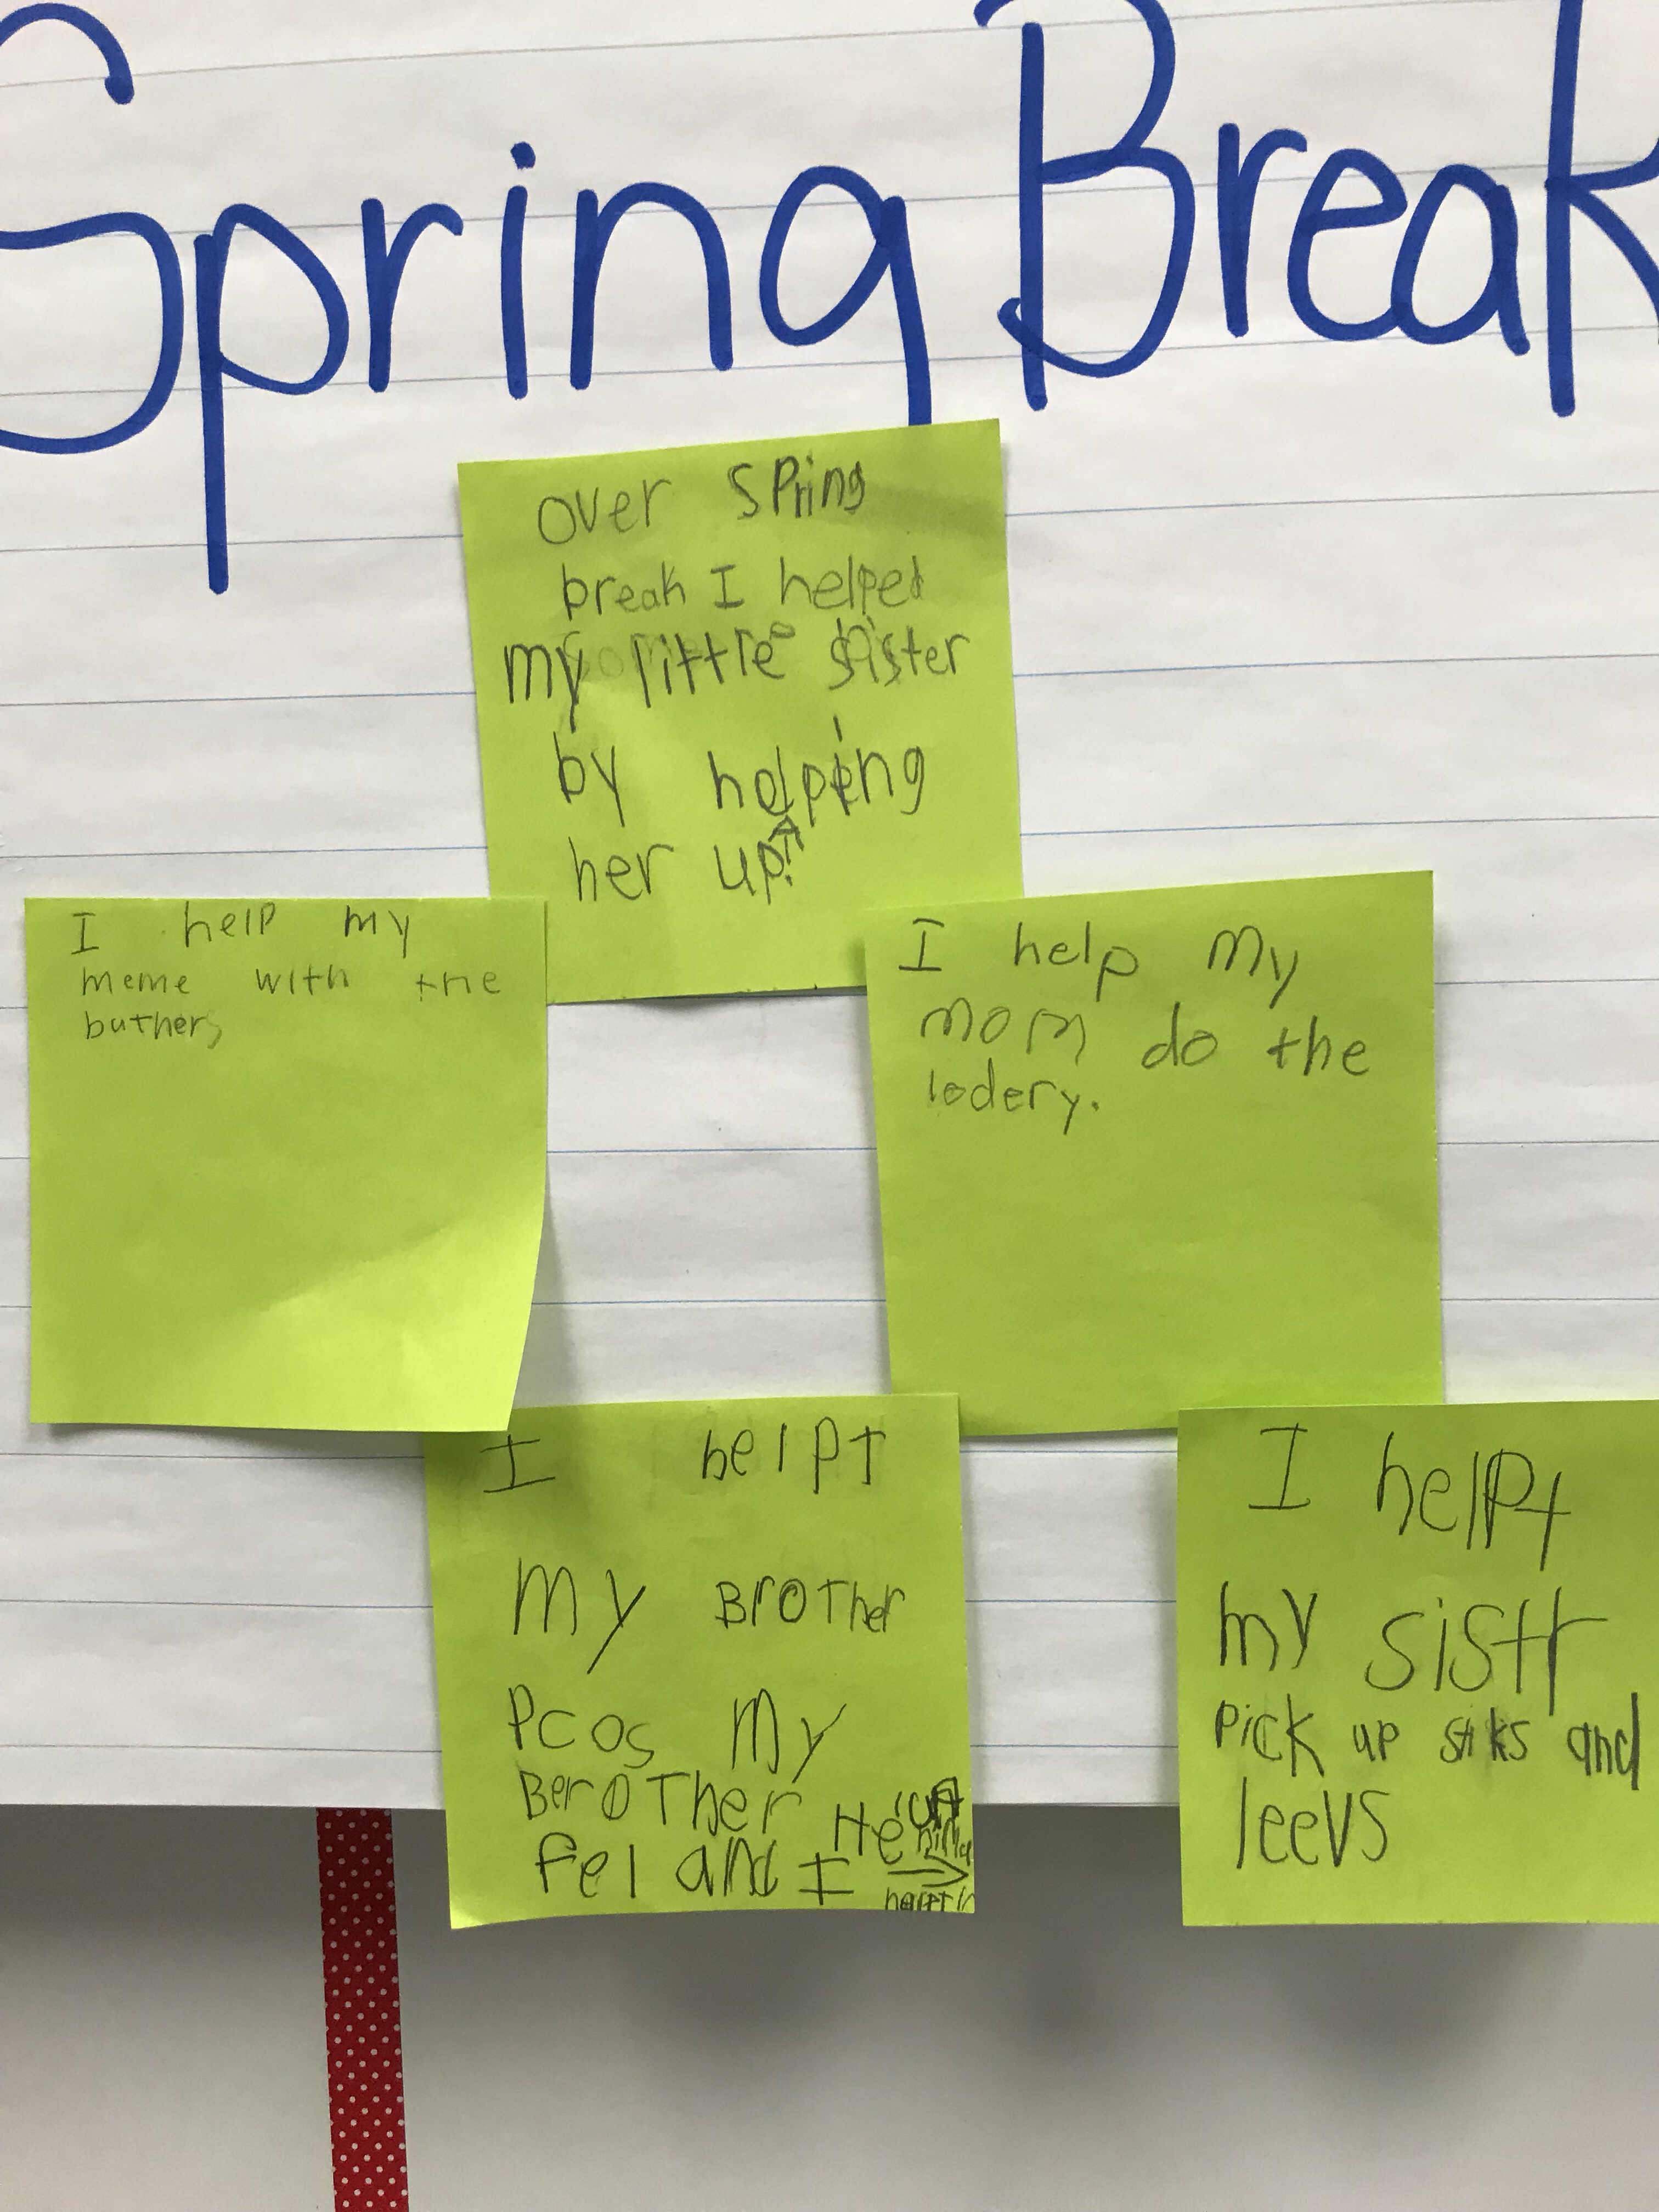 Spring Break
over spring
break I helped
my little sister
by helping
her up.
I help my
meme with the
buthers
I help my
mom do the
lodery.
I helpt
my Brother
Pcos my
BeroTher
fel and I He
I helpt
my sistr
pick up stiks and
leevs